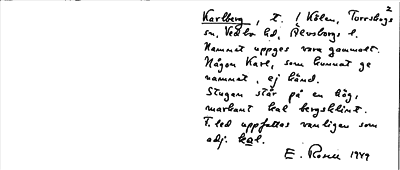 2
Karlberg, t. / Kölen, Torrskogs
sn, Vedbo hd, Älvsborgs l.
Namnet uppges vara gammalt.
Någon Karl, som kunnat ge
namnet, ej känd.
Stugan står på en hög,
markant kal bergsklint.
F. led uppfattas vanligen som
adj. kal.
E. Rosén 1949